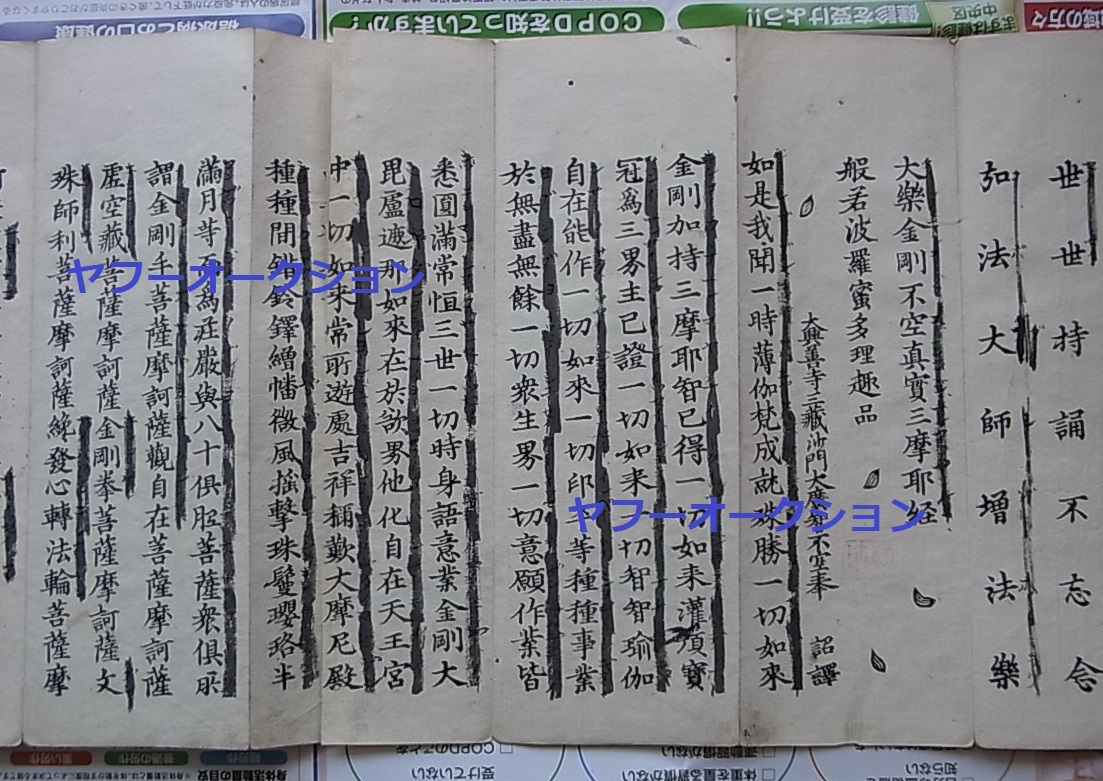 世世持誦不忘念
弘法大師增法樂
大樂金剛不空真實三摩耶経
般若波羅蜜多理趣品
大興善寺三藏沙門大廣智不空奉 詔譯
如是我聞一時薄伽梵成就殊勝一切如來
金剛加持三摩耶智已得一切如来灌頂寶
冠為三界主已證一切如来一切智智瑜伽
自在能作一切如來一切印平等種種事業
於無盡無餘一切衆生界一切意願作業皆
悉圓滿常恒三世一切時身語意業金剛大
毘盧遮那如來在於欲界他化自在天王宮
中一切如来常所遊處吉祥稱歎大摩尼殿
種種間錯鈴鐸繒幡微風搖擊珠鬘瓔珞半
滿月等而為荘嚴與八十俱胝菩薩衆俱所
謂金剛手菩薩摩訶薩觀自在菩薩摩訶薩
虚空藏菩薩摩訶薩金剛拳菩薩摩訶薩文
殊師利菩薩摩訶薩纔發心轉法輪菩薩摩
ヤフーオークション
ヤフーオークション
域の方々
まずは健診!
中央区
健診を受けよう!!
COPDを知っていますか?
糖尿病とお口の健康
COPDのことを
受けていない
運動習慣がない
体重を量る習慣がない
知らない
身体活動量の目安